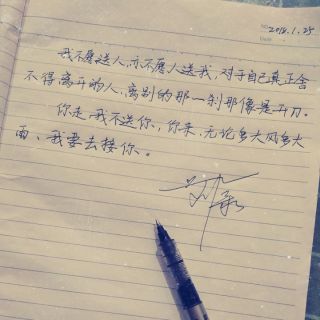 2018.1.25
我不愿送人,亦不愿人送我,对于自己真正舍
不得离开的人,离别的那一刹那像是开刀。
你走,我不送你,你来,无论多大风多大
雨,我要去接你。